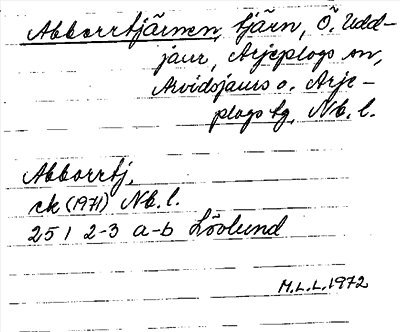 Abborrtjärnen, tjärn, Ö. Udd-
jaur, Arjeplogs sn,
Arvidsjaurs o. Arje-
plogs tg, Nb. l.
Abborrtj,
ek (1971) Nb. l.
25 I 2-3 a-b Lövlund
M.L.L. 1972